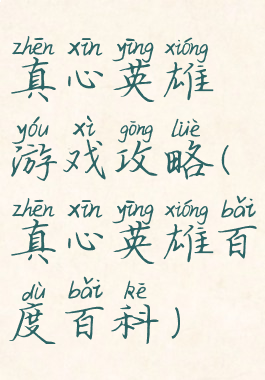 zhēn xīn yīng xióng
真心英雄
yóu xì gōng lüè
游戏攻略(
zhēn xīn yīng xióng bǎi
真心英雄百
dù bǎi kē
度百科)